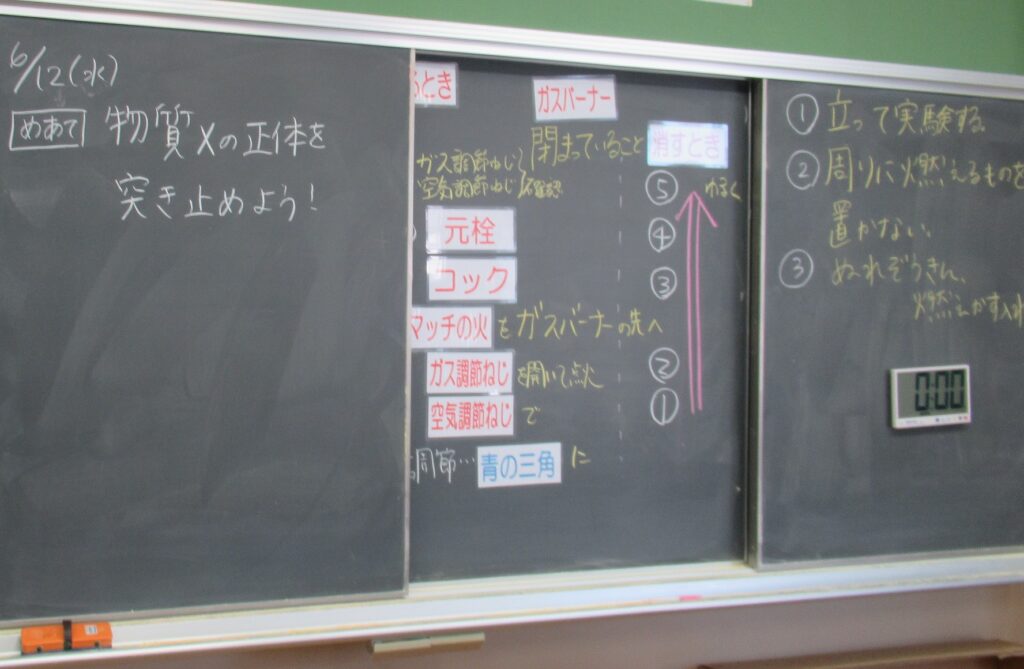 6/12(水)
めあて 物質Xの正体を
突き止めよう!
るとき
ガスバーナー
ガス調節ねじ
空気調節ねじ
閉まっていること
確認
元栓
コック
マッチの火 をガスバーナーの先へ
ガス調節ねじ を開いて点火
空気調節ねじ で
調節… 青の三角 に
消すとき
⑤
④
③
②
①
① 立って実験する。
② 周りに燃えるものを
置かない。
③ ぬれぞうきん、
燃えかす入れ
0:00